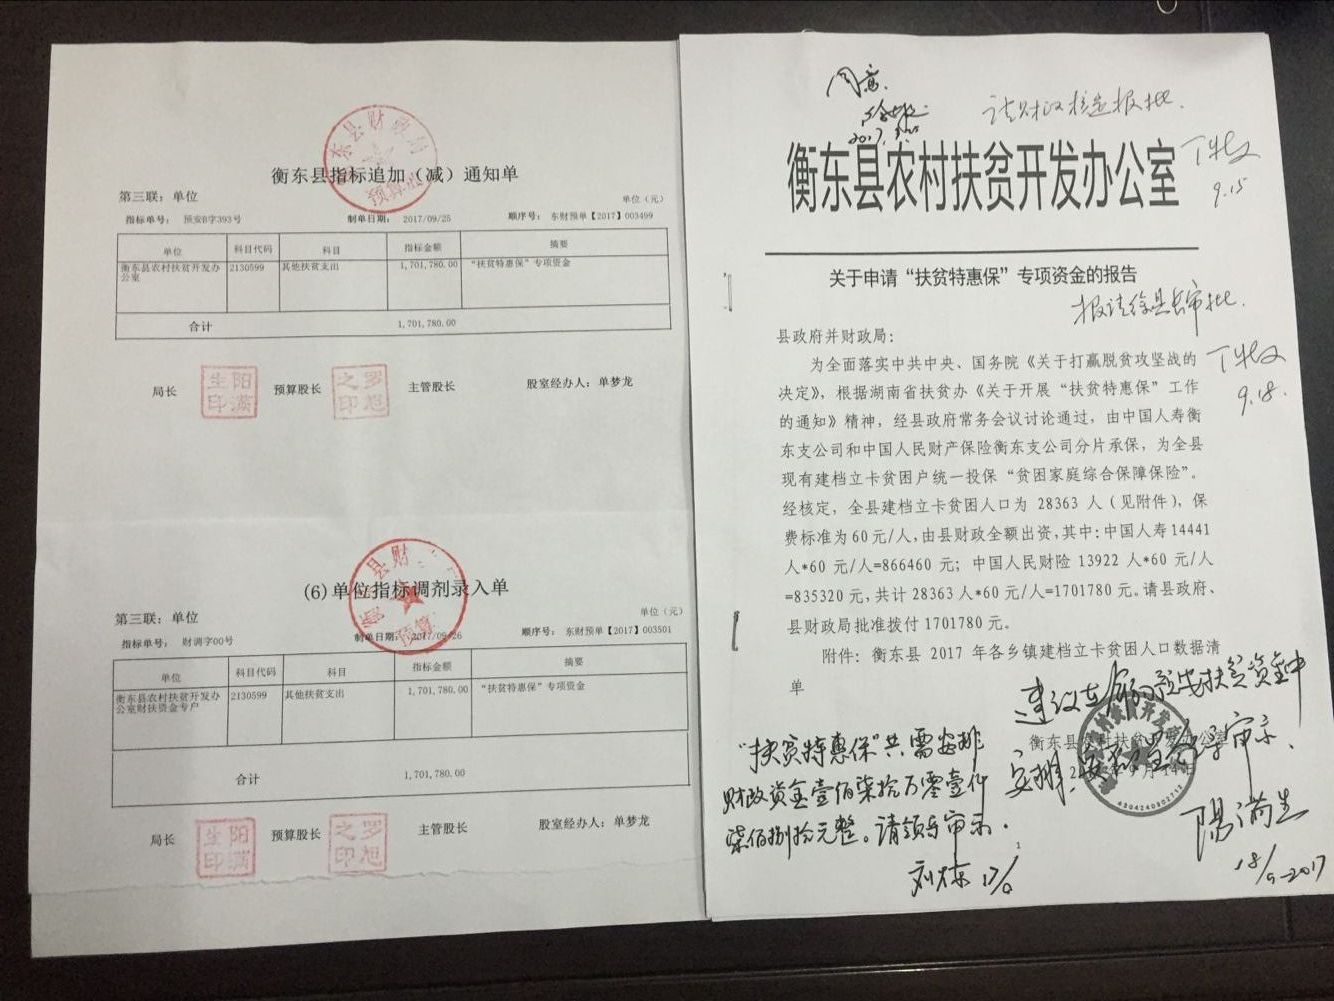 衡东县财政局
预算股
衡东县指标追加（减）通知单
第三联：单位
单位（元）
指标单号： 预安B字393号
制单日期： 2017/09/25
顺序号： 东财预单【2017】003499
单位 科目代码 科目 指标金额 摘要
衡东县农村扶贫开发办公室 2130599 其他扶贫支出 1,701,780.00 “扶贫特惠保”专项资金
合计 1,701,780.00
局长 阳满生印 预算股长 罗旭之印 主管股长 股室经办人：单梦龙
(6)单位指标调剂录入单
第三联：单位
单位（元）
指标单号： 财调字00号
制单日期： 2017/09/26
顺序号： 东财预单【2017】003501
单位 科目代码 科目 指标金额 摘要
衡东县农村扶贫开发办公室财扶资金专户 2130599 其他扶贫支出 1,701,780.00 “扶贫特惠保”专项资金
合计 1,701,780.00
局长 阳满生印 预算股长 罗旭之印 主管股长 股室经办人：单梦龙
同意
请财政核定报批.
9.15
衡东县农村扶贫开发办公室
关于申请“扶贫特惠保”专项资金的报告
报请徐县长审批.
9.18.
县政府并财政局：
为全面落实中共中央、国务院《关于打赢脱贫攻坚战的
决定》，根据湖南省扶贫办《关于开展“扶贫特惠保”工作
的通知》精神，经县政府常务会议讨论通过，由中国人寿衡
东支公司和中国人民财产保险衡东支公司分片承保，为全县
现有建档立卡贫困户统一投保“贫困家庭综合保障保险”。
经核定，全县建档立卡贫困人口为 28363 人（见附件），保
费标准为60元/人，由县财政全额出资，其中：中国人寿14441
人*60 元/人=866460 元；中国人民财险 13922 人*60 元/人
=835320 元，共计 28363 人*60 元/人=1701780 元。请县政府、
县财政局批准拨付 1701780 元。
附件：衡东县 2017 年各乡镇建档立卡贫困人口数据清
单
衡东县农村扶贫开发办公室
2017年9月14日
4304240002712
“扶贫特惠保”共需安排
财政资金壹佰柒拾万零壹仟
柒佰捌拾元整。请领导审示.
刘栋 17/9
扶贫资金中
安排.
审示.
阳满生
18/9-2017
1